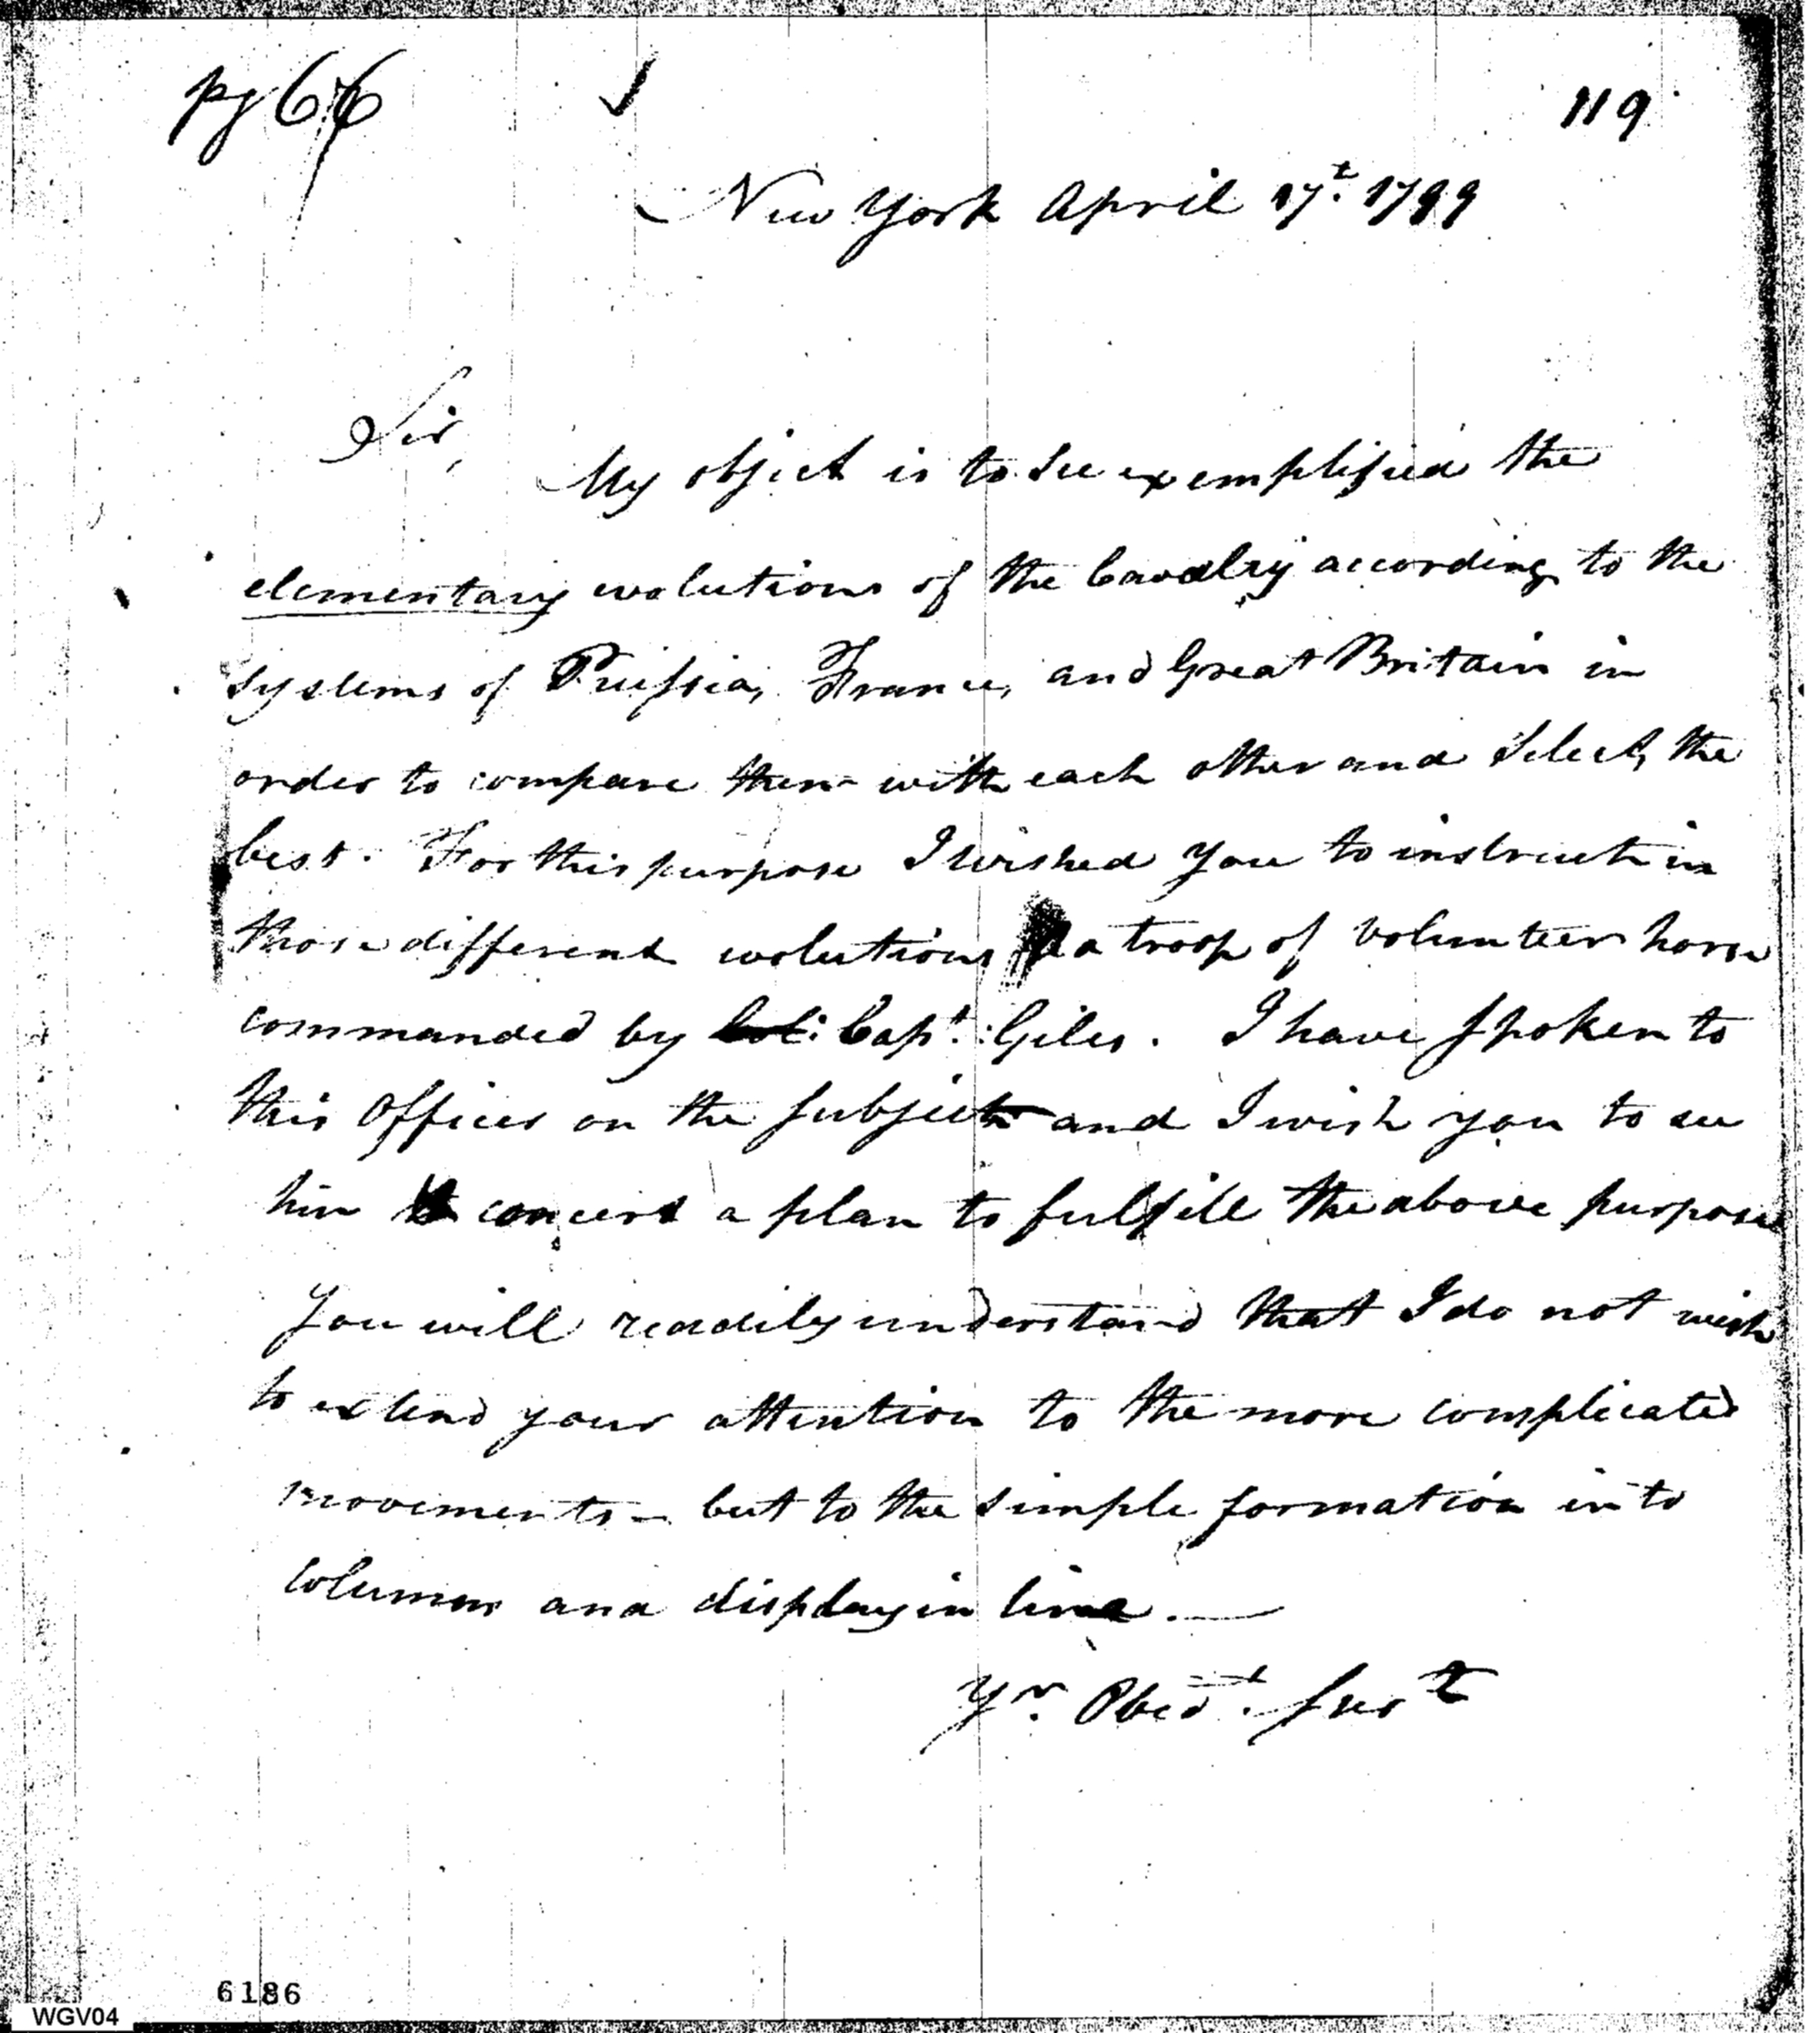 pg 66
119
New York April 17t. 1799
Sir,
My object is to see exemplified the
elementary evolutions of the Cavalry according to the
systems of Prussia, France, and Great Britain in
order to compare them with each other and select the
best. For this purpose I wished you to instruct in
those different evolutions a troop of volunteer horse
commanded by Col: Capt. Giles. I have spoken to
this Officer on the subject and I wish you to see
him to concert a plan to fulfill the above purpose
You will readily understand that I do not wish
to extend your attention to the more complicated
movements – but to the simple formation into
columns and display in line. —
Yr. Obedt. Servt
6186
WGV04